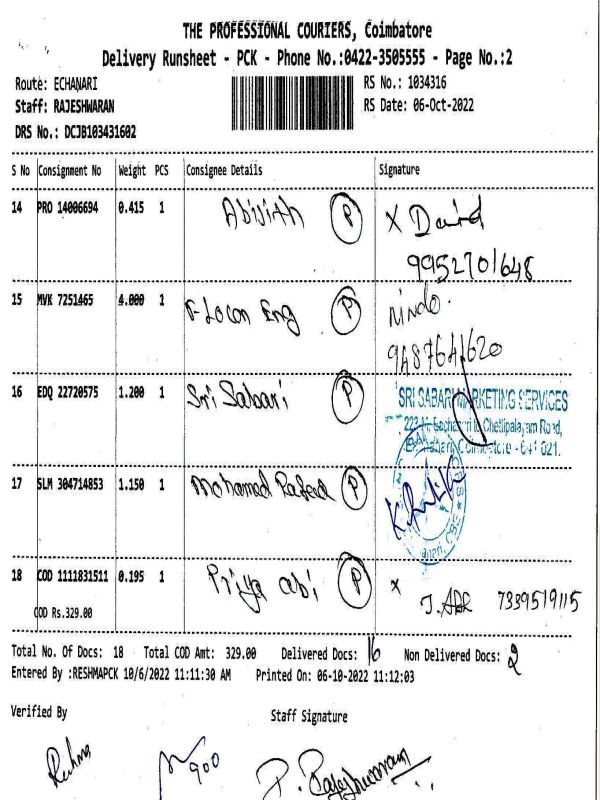 THE PROFESSIONAL COURIERS, Coimbatore
Delivery Runsheet - PCK - Phone No.:0422-3505555 - Page No.:2
Route: ECHANARI RS No.: 1034316
Staff: RAJESHWARAN RS Date: 06-Oct-2022
DRS No.: DCJB103431602
S No Consignment No Weight PCS Consignee Details Signature
14 PRO 14006694 0.415 1 Abijith P X David
9952701648
15 MVK 7251465 4.000 1 P
9487641620
16 EDQ 22720575 1.200 1 Sri Sabari P SRI SABARI MARKETING SERVICES
Chettipalayam Road,
Coimbatore - 641 021.
17 SLM 304714853 1.150 1 Mohamed P
18 COD 1111831511 0.195 1 Priya abi P X 7339519115
COD Rs.329.00
Total No. Of Docs: 18 Total COD Amt: 329.00 Delivered Docs: 16 Non Delivered Docs: 2
Entered By :RESHMAPCK 10/6/2022 11:11:30 AM Printed On: 06-10-2022 11:12:03
Verified By Staff Signature
900 P. Rajeshwaran